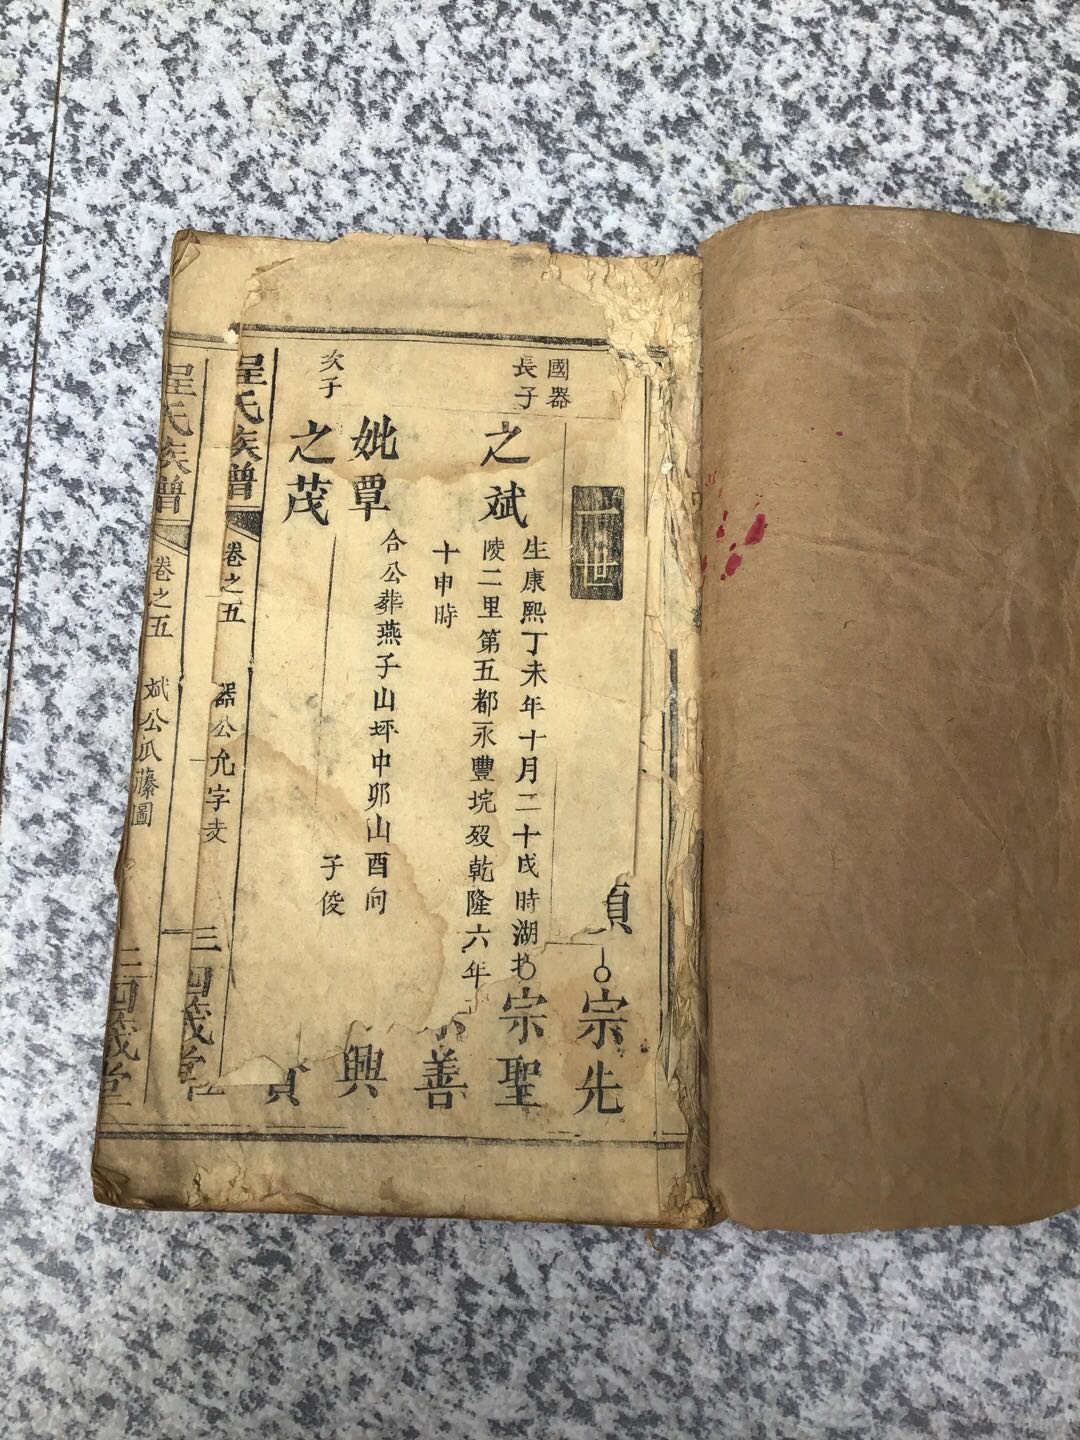 一世
國器
長子
之斌
生康熙丁未年十月二十戌時湖
陵二里第五都永豐垸歿乾隆六年
十申時
宗先
宗聖
善
興
妣覃
合公葬燕子山坪中卯山酉向
子俊
次子
之茂
程氏族譜
卷之五
器公允字支
三
四箴堂
程氏族譜
卷之五
斌公瓜藤圖
二
四箴堂